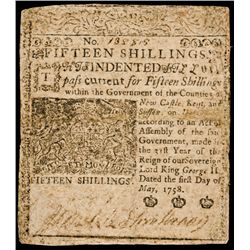 No. 13555
FIFTEEN SHILLINGS.
THIS INDENTED BILL
pass current for Fifteen Shillings
within the Government of the Counties of
New Castle, Kent, and
Sussex, on
according to an Act of
Assembly of the said
Government, made in
the 31st Year of the
Reign of our Sovereign
Lord King George II.
Dated the first Day of
May, 1758.
FIFTEEN SHILLINGS.